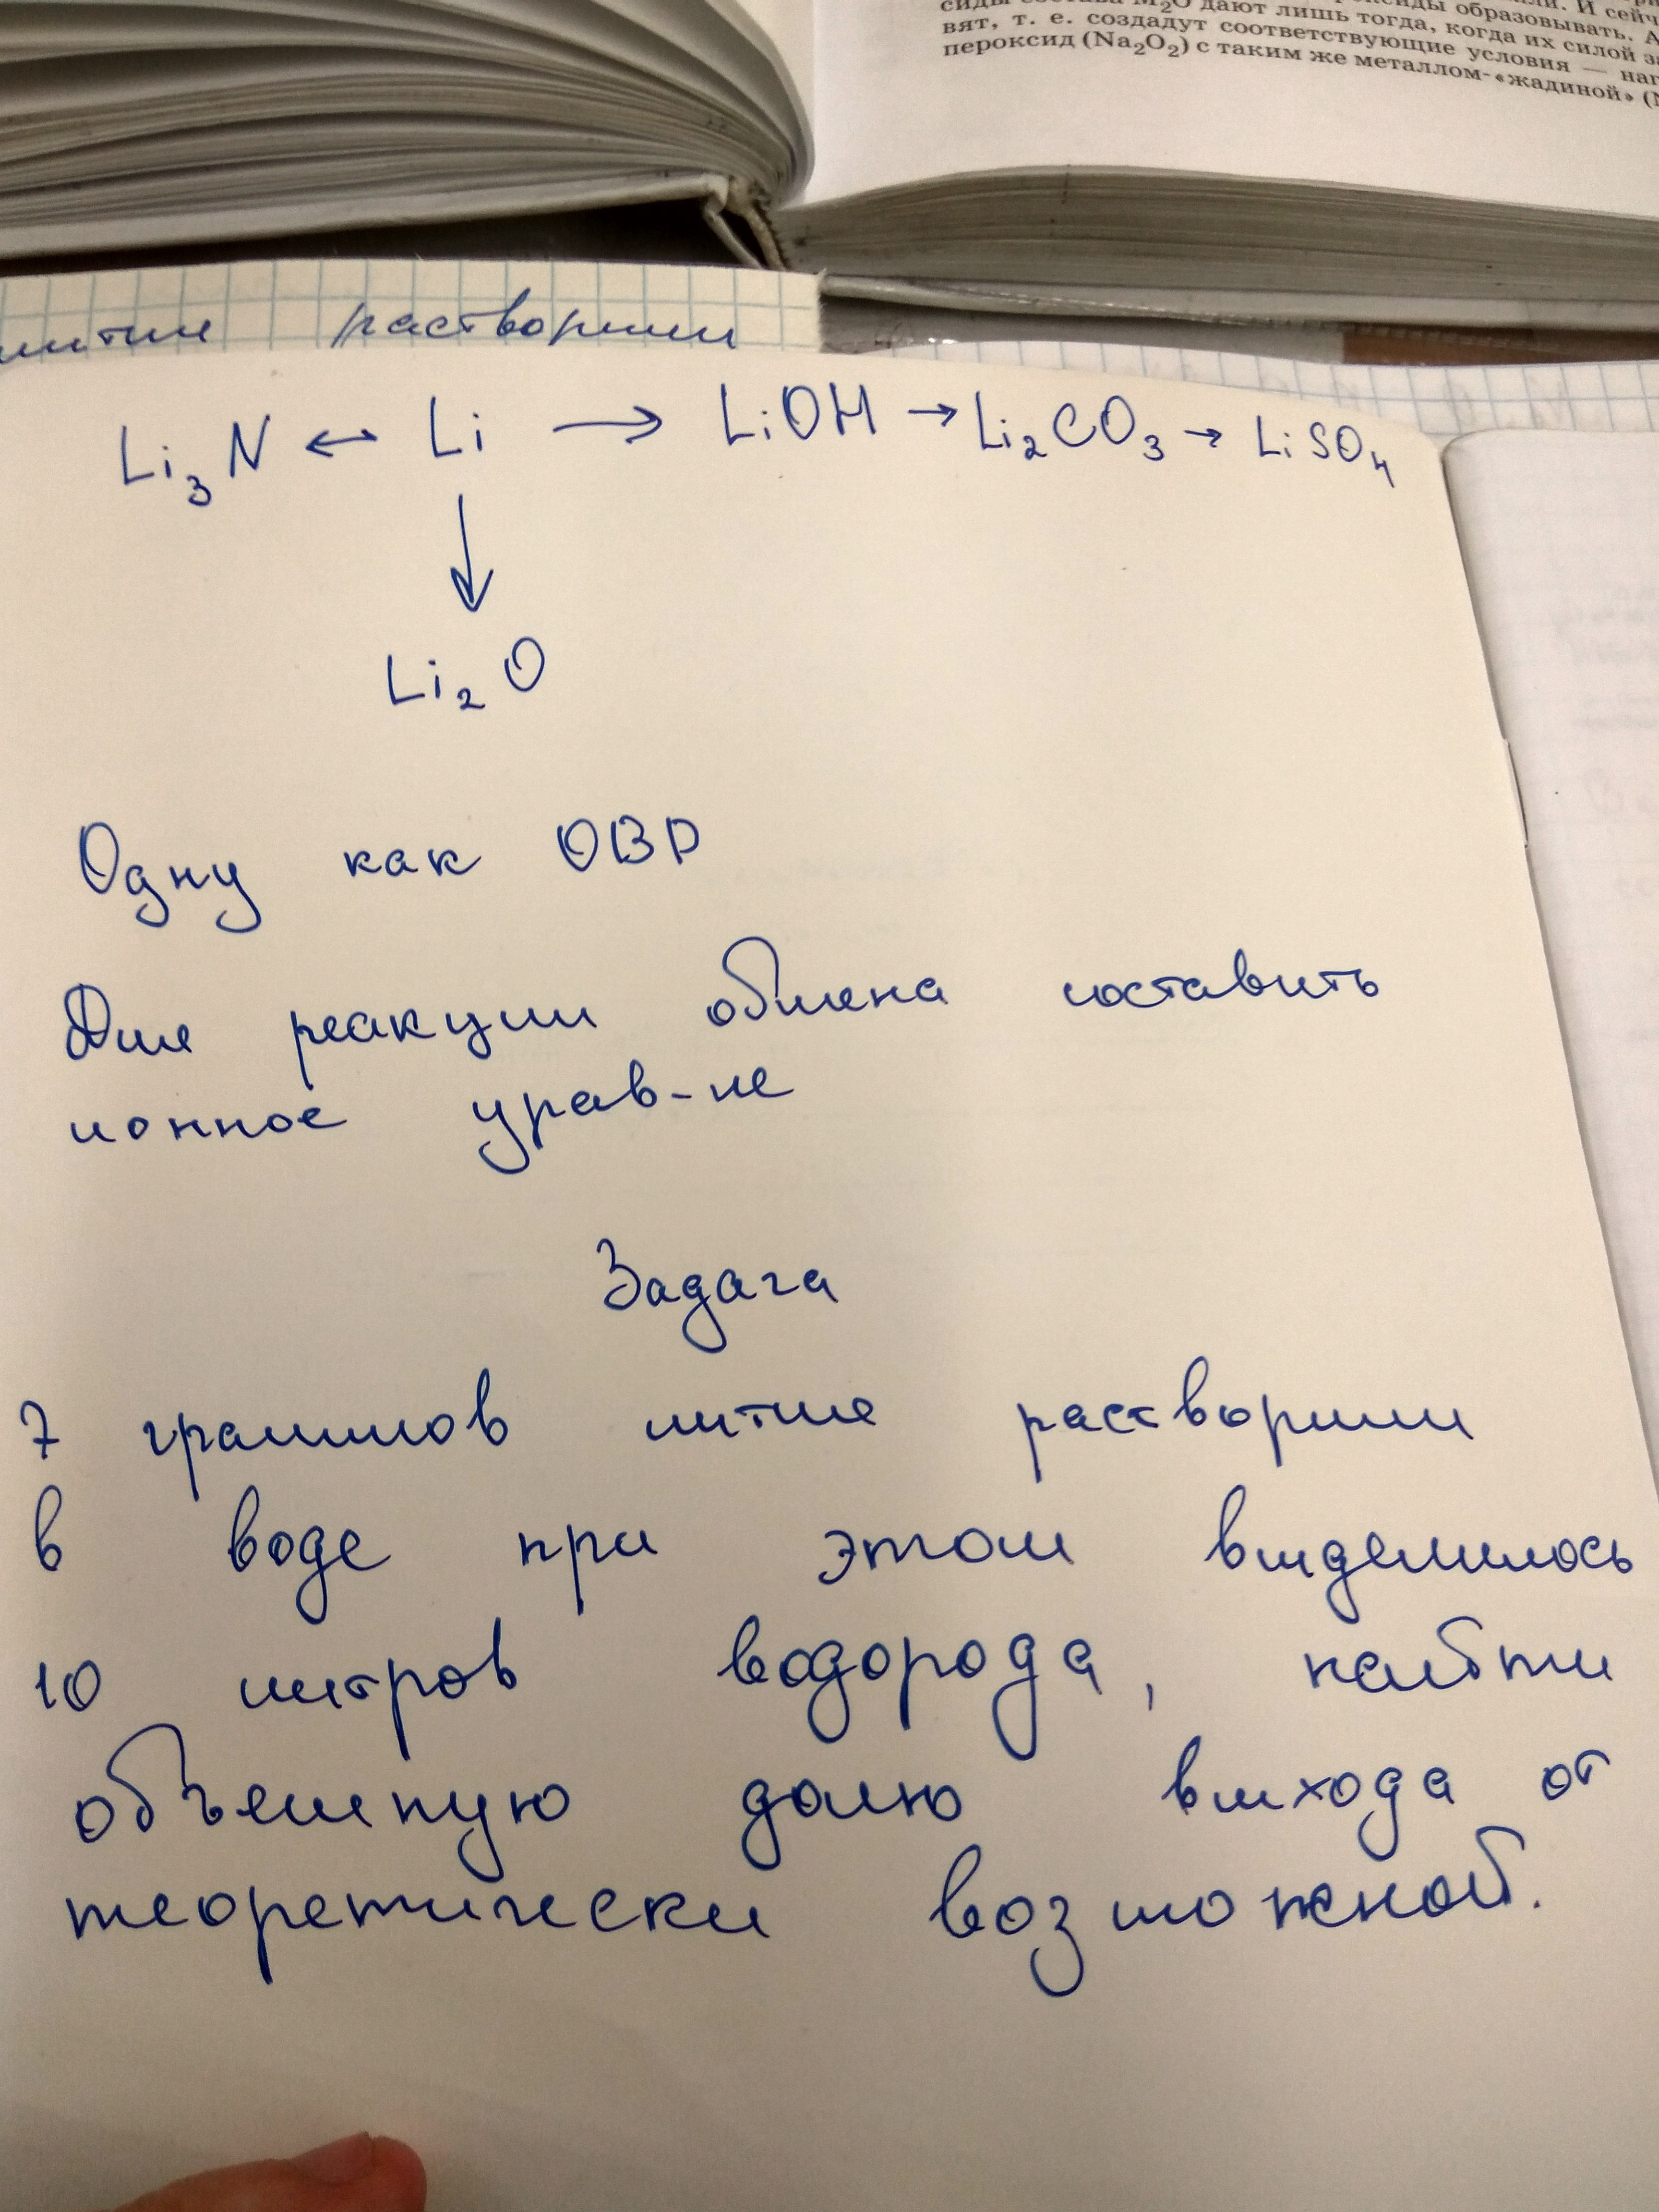 вят, т. е. создадут соответствующие условия — наг
пероксид (Na₂O₂) с таким же металлом-«жадиной» (N
лития растворили
Li₃N ↔ Li → LiOH → Li₂CO₃ → LiSO₄
↓
Li₂O
Одну как ОВР
Для реакции обмена составить
ионное урав-не
Задача
7 граммов лития растворили
в воде при этом выделилось
10 литров водорода, найти
объемную долю выхода от
теоретически возможной.